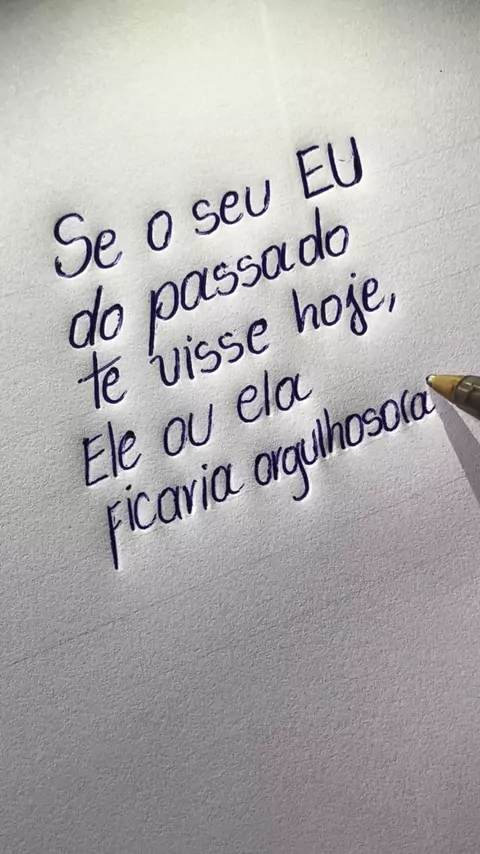 Se o seu EU
do passado
te visse hoje,
Ele ou ela
ficaria orgulhoso(a